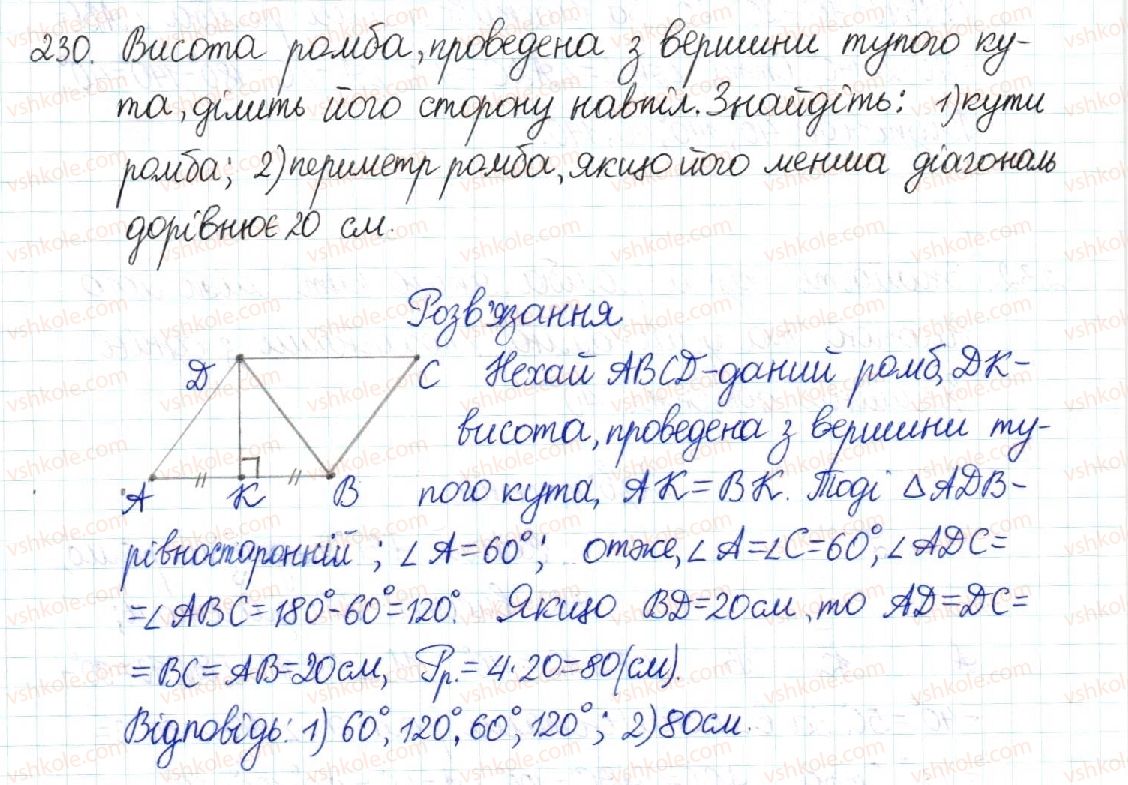 230. Висота ромба, проведена з вершини тупого ку-
та, ділить його сторону навпіл. Знайдіть: 1) кути
ромба; 2) периметр ромба, якщо його менша діагональ
дорівнює 20 см.
Розв'язання
D C Нехай ABCD - даний ромб, DK -
висота, проведена з вершини ту-
A K B пого кута, AK = BK. Тоді △ADB -
рівносторонній; ∠A = 60°; отже, ∠A = ∠C = 60°, ∠ADC =
= ∠ABC = 180° - 60° = 120°. Якщо BD = 20 см, то AD = DC =
= BC = AB = 20 см, Pр. = 4 · 20 = 80 (см).
Відповідь: 1) 60°, 120°, 60°, 120°; 2) 80 см.